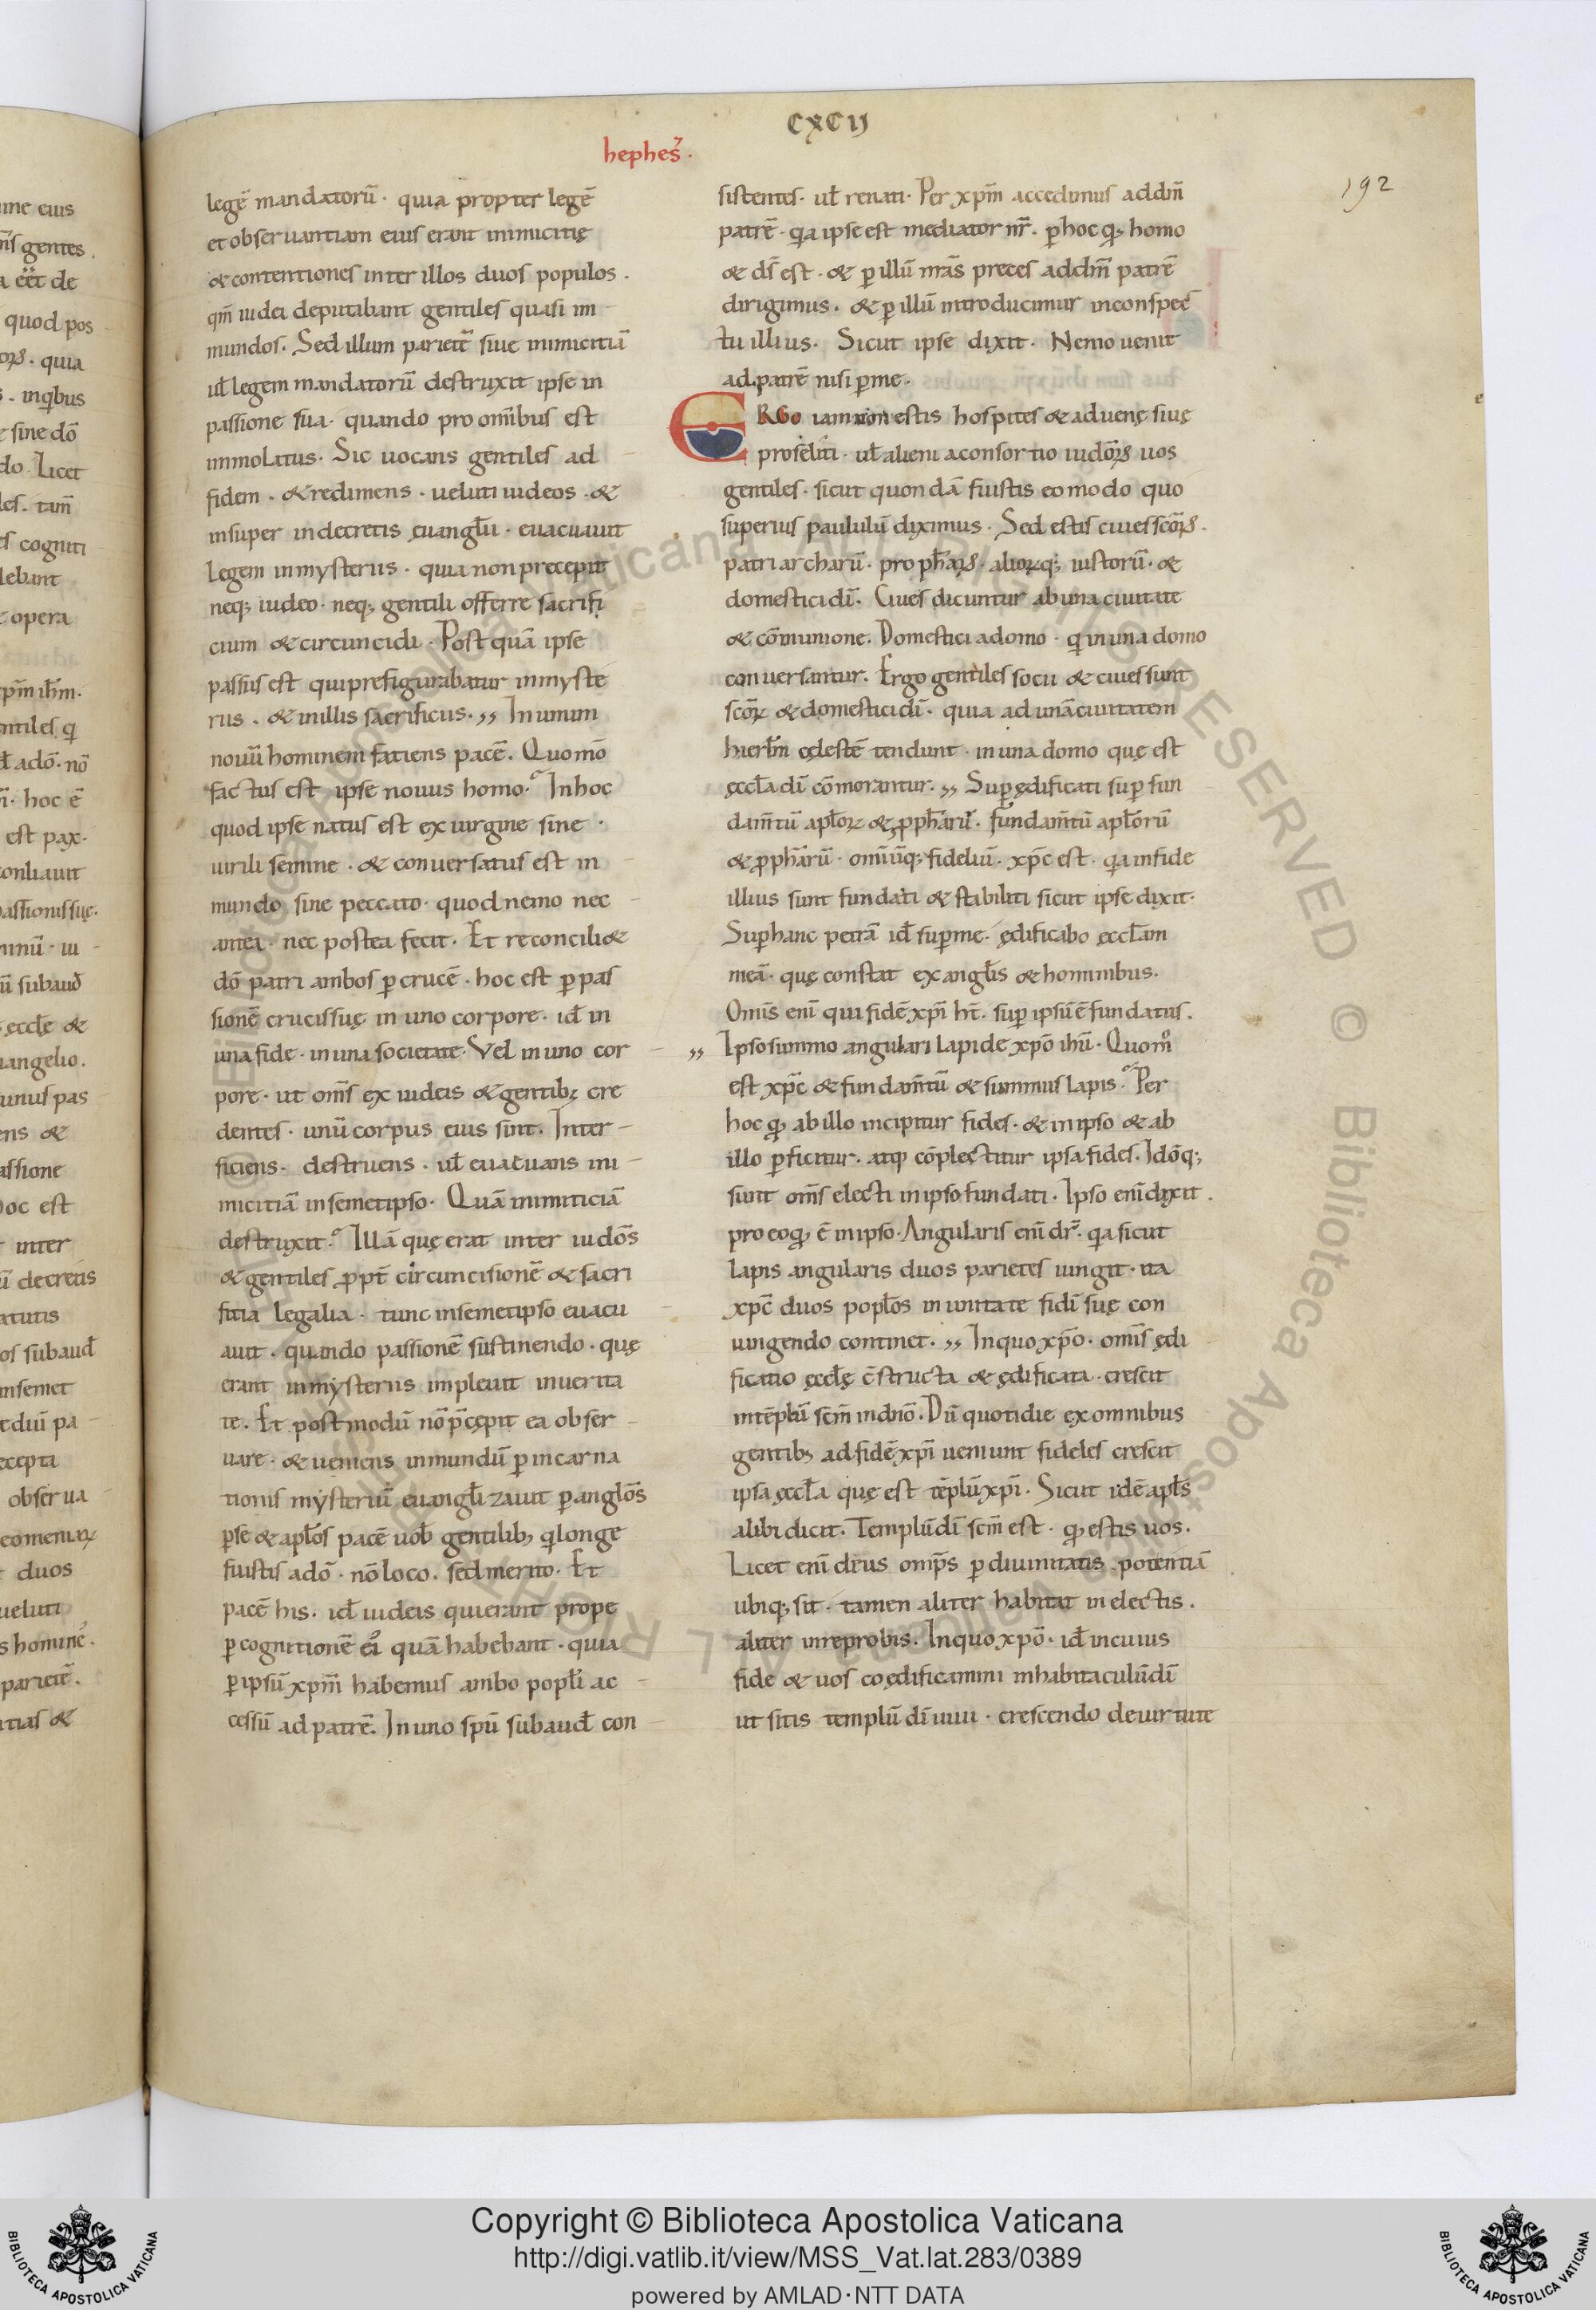 CXCIJ
hephes᷒.
192
legē mandatorū. quia propter legē
et obseruantiam eius erant inimicitię
& contentiones inter illos duos populos.
qm̄ iudei deputabant gentiles quasi im
mundos. Sed illum parietē siue inimicitiā
ul̄ legem mandatorū destruxit ipse in
passione sua. quando pro omībus est
immolatus. Sic uocans gentiles ad
fidem. & redimens. ueluti iudeos. &
insuper in decretis euangl̄ii. euacuauit
Legem in mysteriis. quia non precepit
neq; iudeo. neq; gentili offerre sacrifi
cium & circuncidi. Post quā ipse
passus est qui prefigurabatur in myste
riis. & in illis sacrificiis. ,, In unum
nouū hominem fatiens pacē. Quomō
factus est ipse nouus homo? In hoc
quod ipse natus est ex uirgine sine
uirili semine. & conuersatus est in
mundo sine peccato. quod nemo nec
antea. nec postea fecit. Et reconcili&
dō patri ambos p̄ crucē. hoc est p̄ pas
sionē crucis suę in uno corpore. id̄ in
una fide. in una societate. Vel in uno cor
pore. ut om̄s ex iudeis & gentib; cre
dentes. unū corpus eius sint. Inter
ficiens. destruens. ul̄ euacuans ini
micitiā in semetipso. Quā inimiticiā
destruxit? Illā quę erat inter iudōs
& gentiles ꝓpt̄ circuncisionē & sacri
fitia legalia. tunc in semetipso euacu
auit. quando passionē sustinendo. quę
erant in mysteriis impleuit in uerita
te. Et post modū nō p̄cępit ea obser
uare. & ueniens in mundū p̄ incarna
tionis mysteriū euangl̄izauit p̄ anglōs
p̄se & apl̄os pacē uob̄ gentilib; qi longe
fuistis a dō. nō loco. sed merito. Et
pacē his. id̄ iudeis qui erant prope
p̄ cognitionē ei quā habebant. quia
p̄ ipsū xpm̄ habemus ambo popl̄i ac
cessū ad patrē. In uno spū subaud̄ con
sistentes. ul̄ renati. Per xpm̄ accedimus ad dm̄
patrē. qa ipse est mediator nr̄. p̄ hoc qd homo
& ds̄ est. & p̄ illū nrās preces ad dm̄ patrē
dirigimus. & p̄ illū introducimur in conspec
tu illius. Sicut ipse dixit. Nemo uenit
ad patrē nisi p̄ me.
ERGO iam non estis hospites & aduenę siuę
proseliti. ul̄ alieni a consortio iudōꝝ uos
gentiles. sicut quondā fuistis eo modo quo
superius paululū diximus. Sed estis ciues scōꝝ.
patriarcharū. proph̄aꝝ. alioꝝq; iustorū. &
domestici dī. Ciues dicuntur ab una ciuitate
& cōmunione. Domestici a domo. qi in una domo
conuersantur. Ergo gentiles socii & ciues sunt
scōꝝ & domestici dī. quia ad unā ciuitatem
hierl̄m cęlestē tendunt. in una domo quę est
ęccl̄a dī cōmorantur. ,, Sup̄ ędificati sup̄ fun
dam̄tū apl̄oꝝ & ꝓph̄arū. Fundam̄tū apl̄orū
& ꝓph̄arū. omīūq; fideliū. xpc̄ est. qa in fide
illius sunt fundati & stabiliti sicut ipse dixit.
Sup̄ hanc petrā id̄ sup̄ me. ędificabo ęccl̄am
meā. quę constat ex angl̄is & hominibus.
Omīs enī qui fidē xpī ht̄. sup̄ ipsū ē fundatus.
,, Ipso summo angulari Lapide xpō ihū. Quom̊
est xpc̄ & fundam̄tū & summus lapis? Per
hoc qd ab illo incipitur fides. & in ipso & ab
illo p̄ficitur. atq; cōplectitur ipsa fides. Idōq;
sunt om̄s electi in ipso fundati. Ipso enī dixit.
pro eo qd ē in ipso. Angularis enī dr̄. qa sicut
lapis angularis duos parietes iungit. ita
xpc̄ duos popl̄os in unitate fidī suę con
iungendo continet. ,, In quo xpō. omīs ędi
ficatio ęccl̄ę cstructa & ędificata. crescit
in tēplū scm̄ in dnō. Dū quotidie ex omnibus
gentib; ad fidē xpī ueniunt fideles crescit
ipsa ęccl̄a quę est tēplū xpī. Sicut idē apl̄s
alibi dicit. Templū dī scm̄ est. qd estis uos.
Licet enī dēus omp̄s p̄ diuinitatis potentiā
ubiq; sit. tamen aliter habitat in electis.
aliter in reprobis. In quo xpō. id̄ in cuius
fide & uos coędificamini in habitaculū dī
ut sitis templū dī uiui. crescendo de uirtute
Copyright © Biblioteca Apostolica Vaticana
http://digi.vatlib.it/view/MSS_Vat.lat.283/0389
powered by AMLAD·NTT DATA